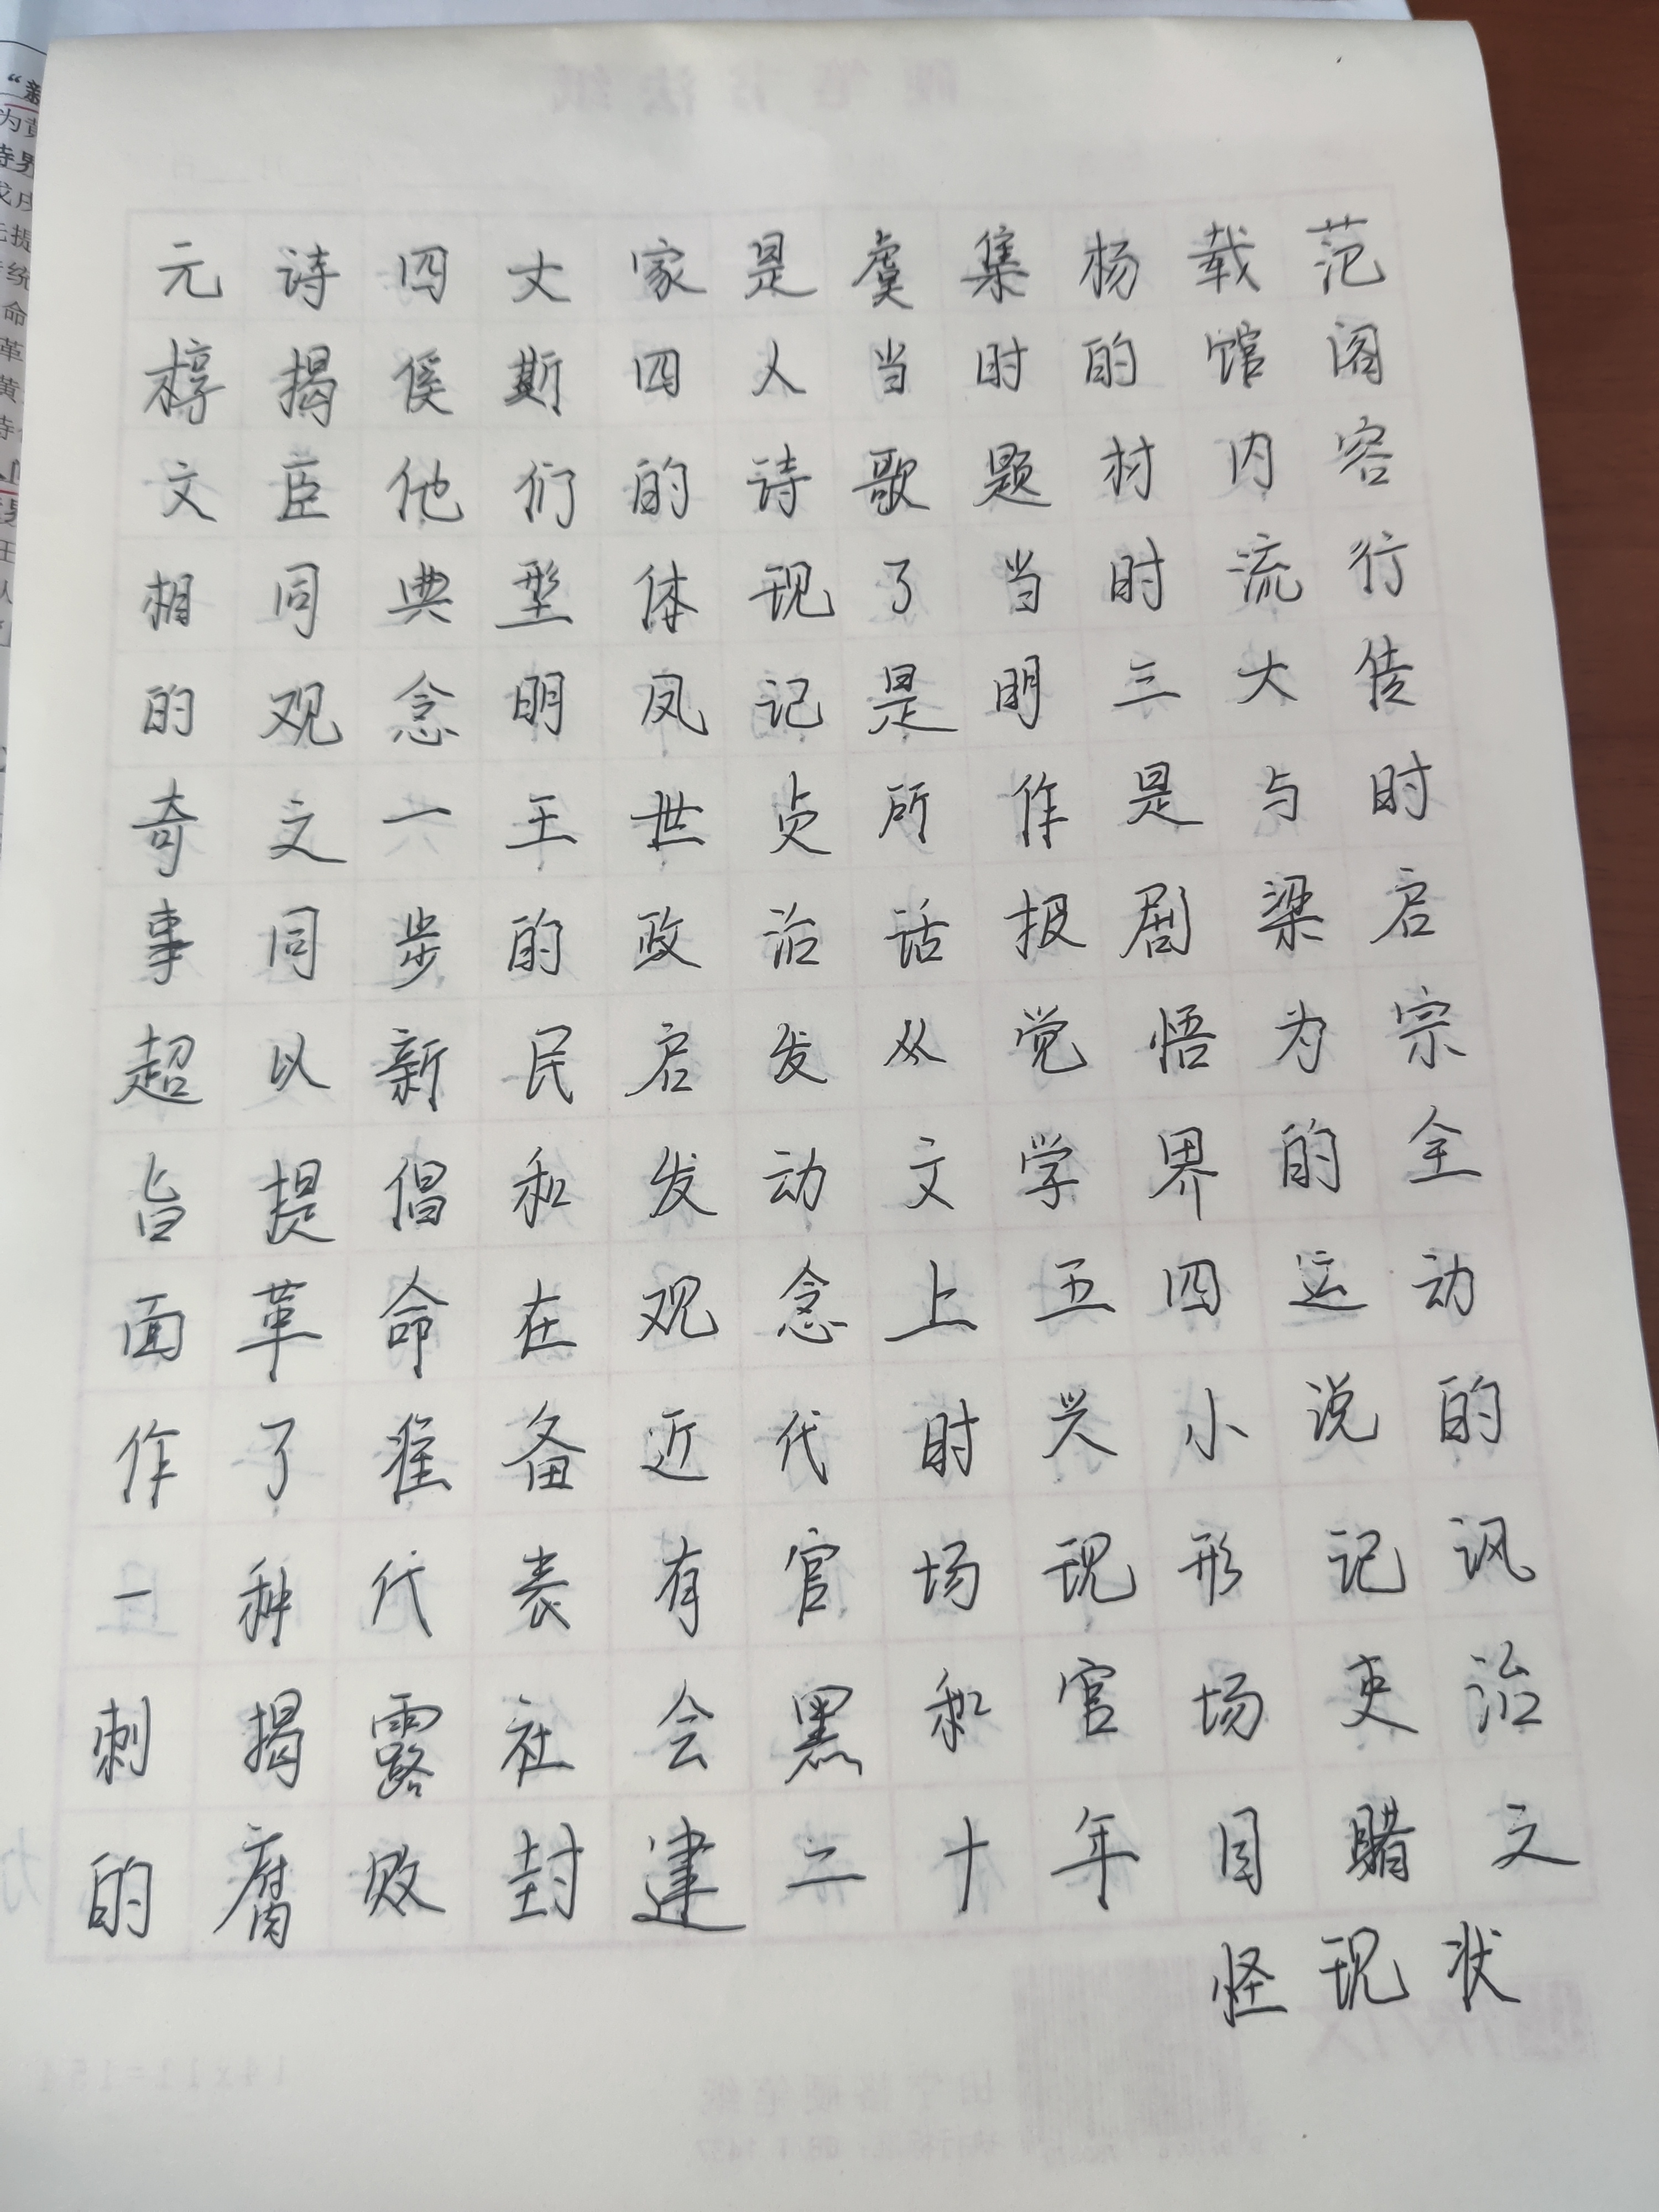 元诗四大家是虞集杨载范
椁揭傒斯四人当时的馆阁
文臣他们的诗歌题材内容
相同典型体现了当时流行
的观念明凤记是明三大传
奇之一王世贞所作是与时
事同步的政治话报剧梁启
超以新民启发从觉悟为宗
旨提倡和发动文学界的全
面革命在观念上五四运动
作了准备近代时兴小说的
一种代表有官场现形记讽
刺揭露社会黑和官场吏治
的腐败封建二十年目睹之
怪现状